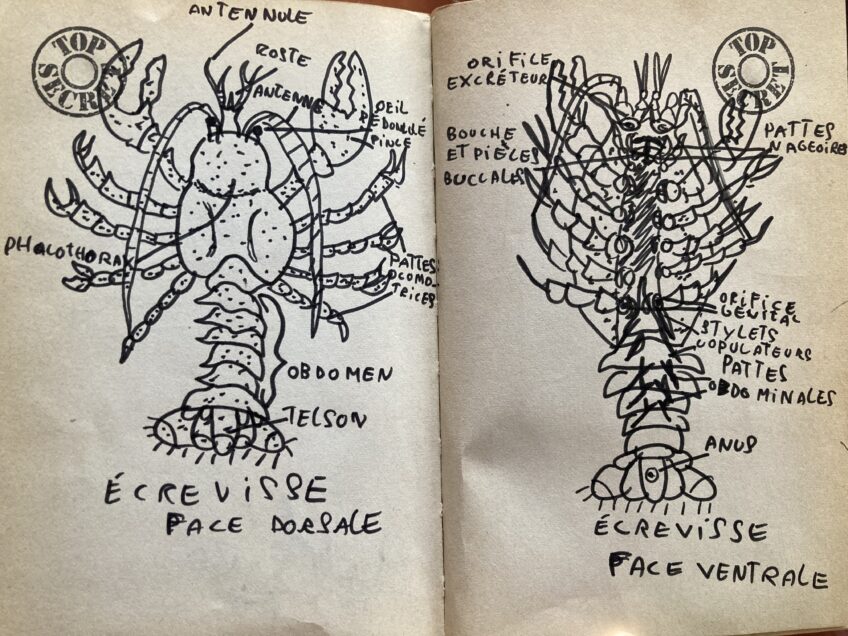 TOP
SECRET
ANTENNULE
ROSTE
ANTENNE
OEIL
PÉDONCULÉ
PINCE
PHALOTHORAX
PATTES
OCOMO-
TRICES
OBDOMEN
TELSON
ÉCREVISSE
FACE DORSALE
TOP
SECRET
ORIFICE
EXCRÉTEUR
BOUCHE
ET PIÈCES
BUCCALES
PATTES
NAGEOIRES
ORIFICE
GÉNITAL
STYLETS
COPULATEURS
PATTES
OBDOMINALES
ANUS
ÉCREVISSE
FACE VENTRALE